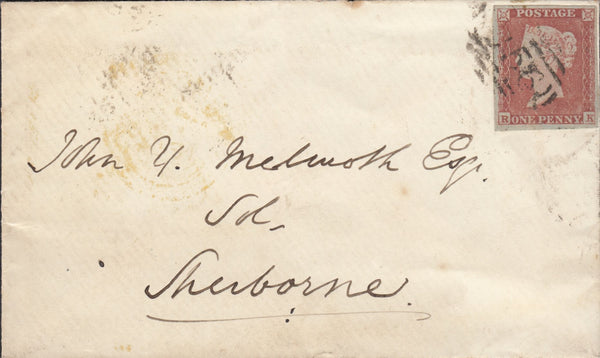 POSTAGE
R ONE PENNY K
John Y. Medwoth Esq.
Sol,
Sherborne.